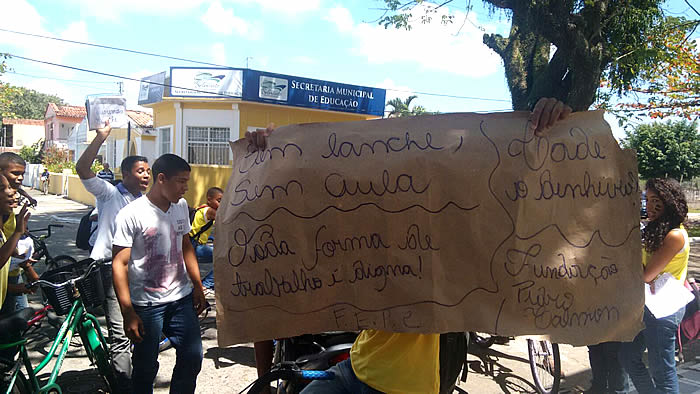 SECRETARIA MUNICIPAL
DE EDUCAÇÃO
Sem lanche,
Sem aula
Toda forma de
trabalho é digna!
Cade
o dinheiro?
Fundação
Pedro
Calmon